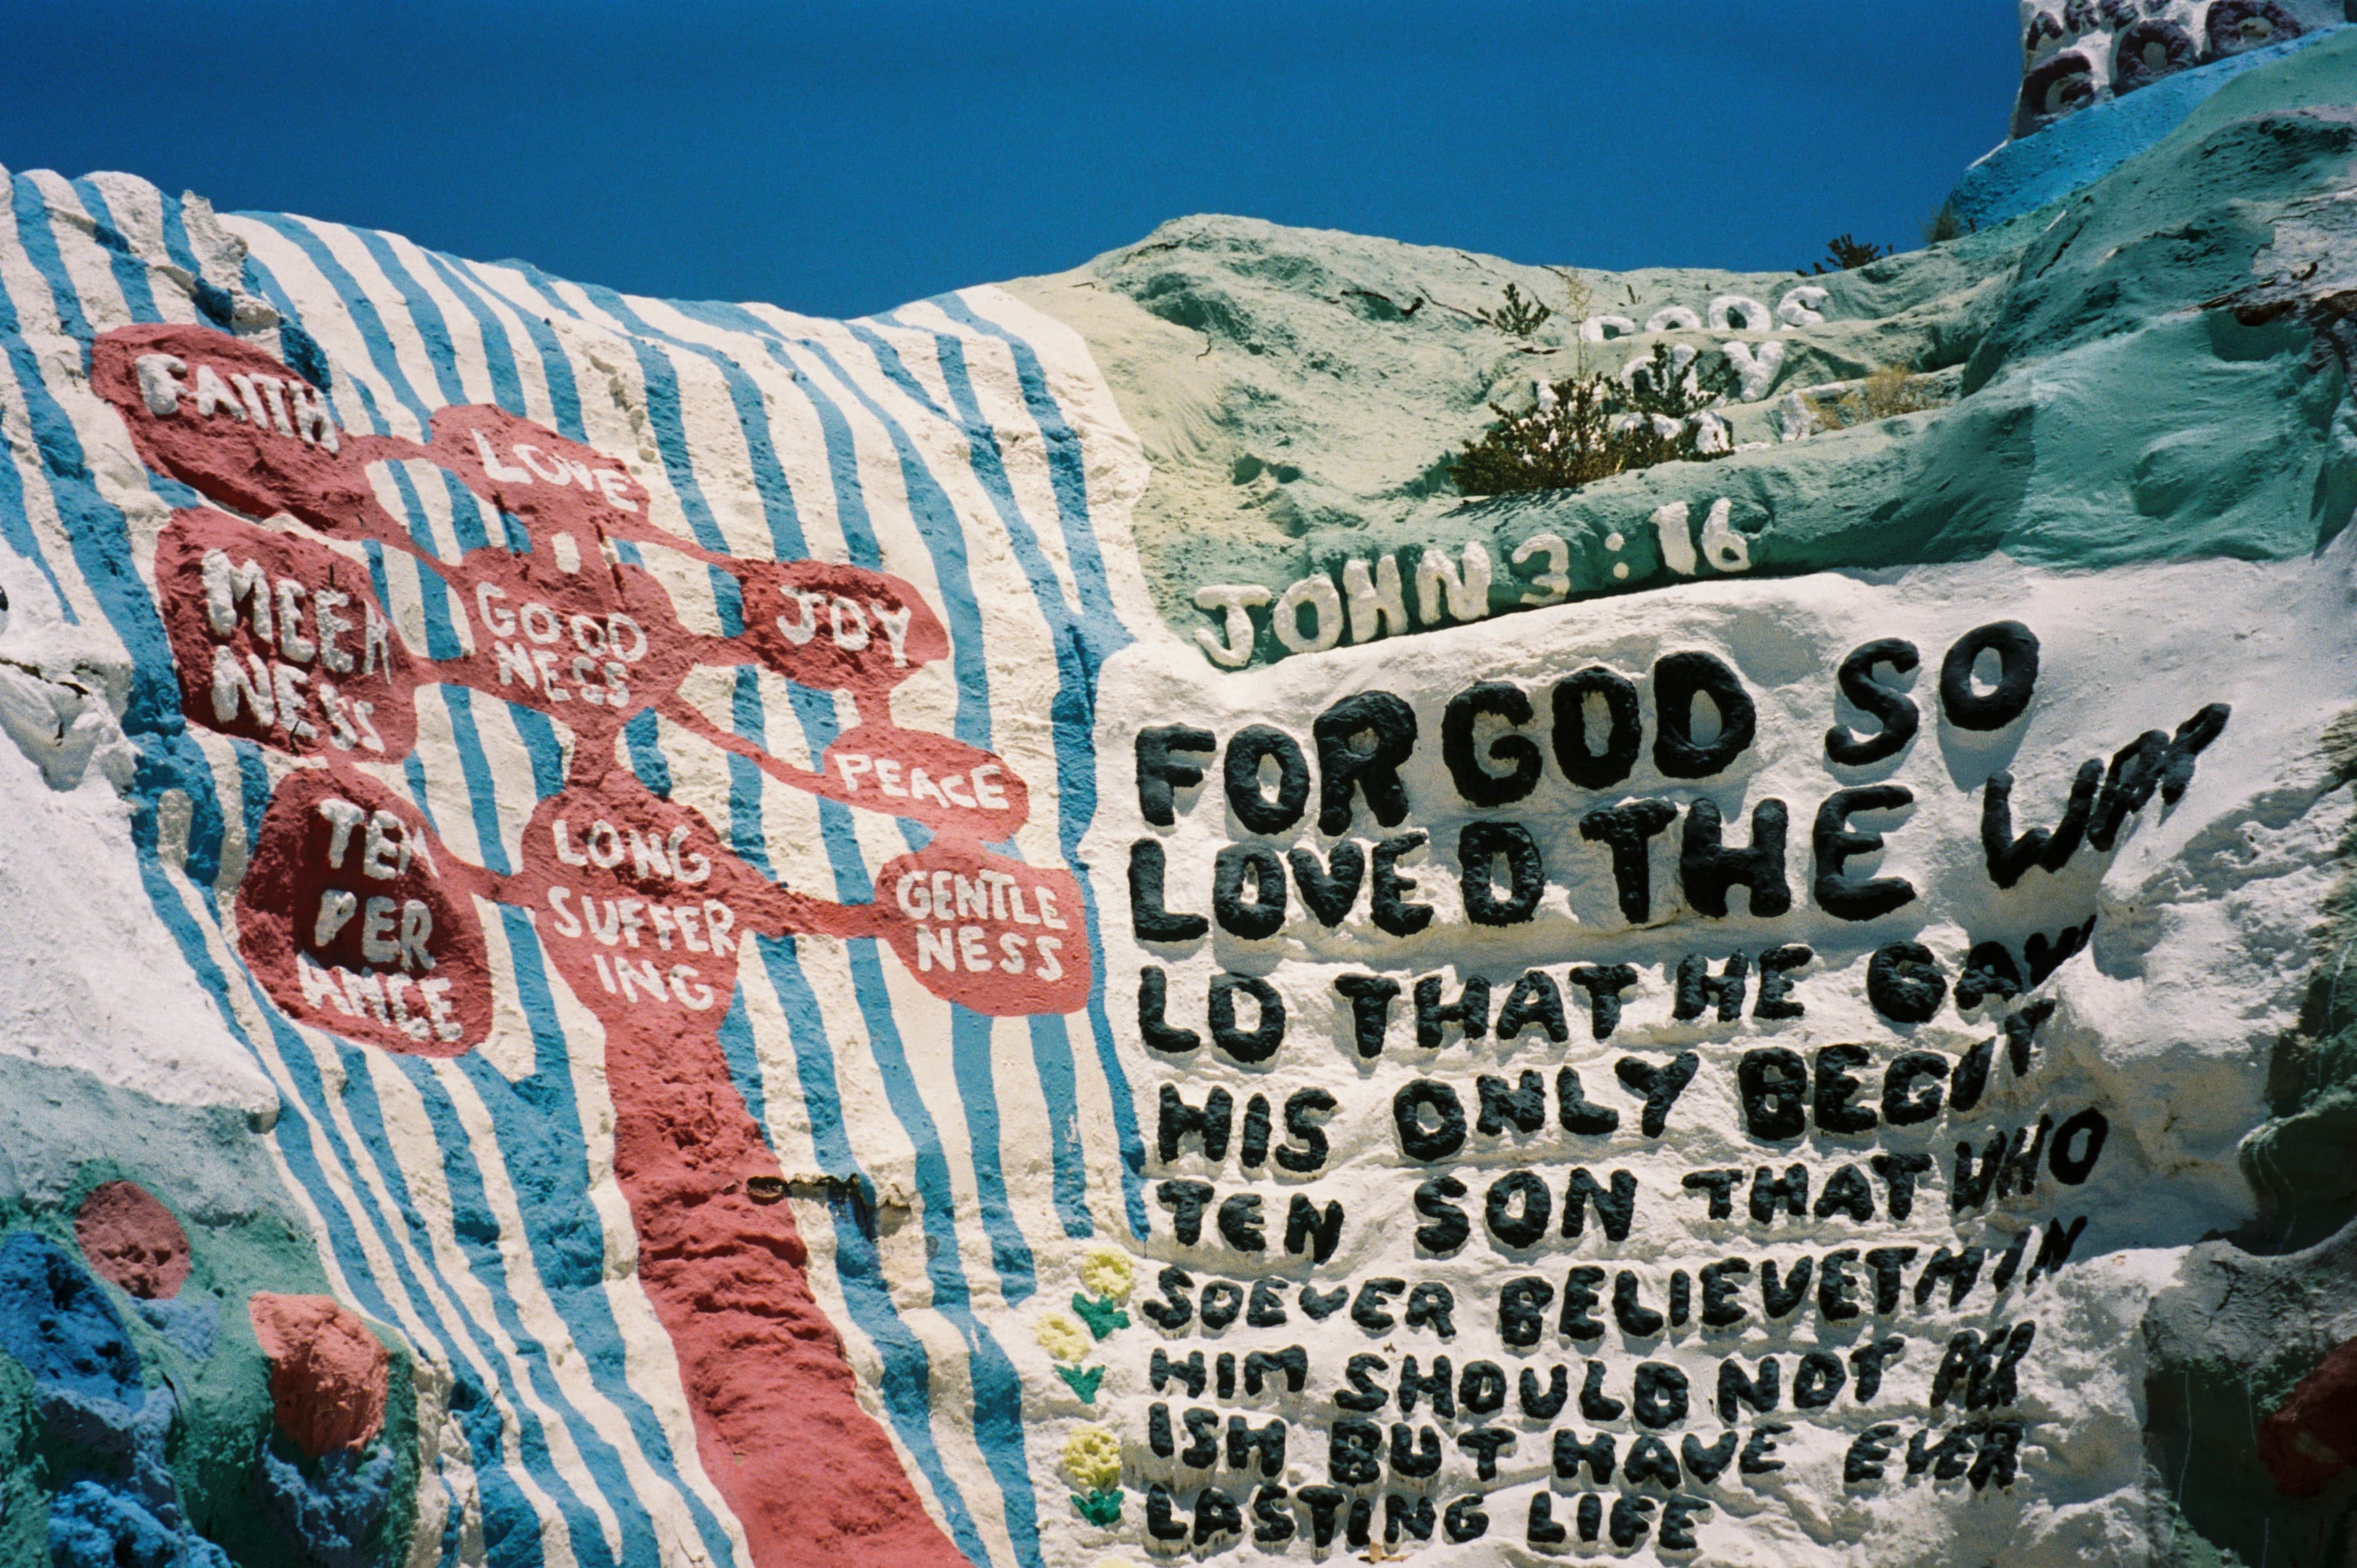 GOD
FAITH
LOVE
MEEK
NESS
GOOD
NESS
JOY
PEACE
TEM
PER
ANCE
LONG
SUFFER
ING
GENTLE
NESS
JOHN 3:16
FOR GOD SO
LOVED THE WOR
LD THAT HE GAVE
HIS ONLY BEGOT
TEN SON THAT WHO
SOEVER BELIEVETH IN
HIM SHOULD NOT PER
ISH BUT HAVE EVER
LASTING LIFE